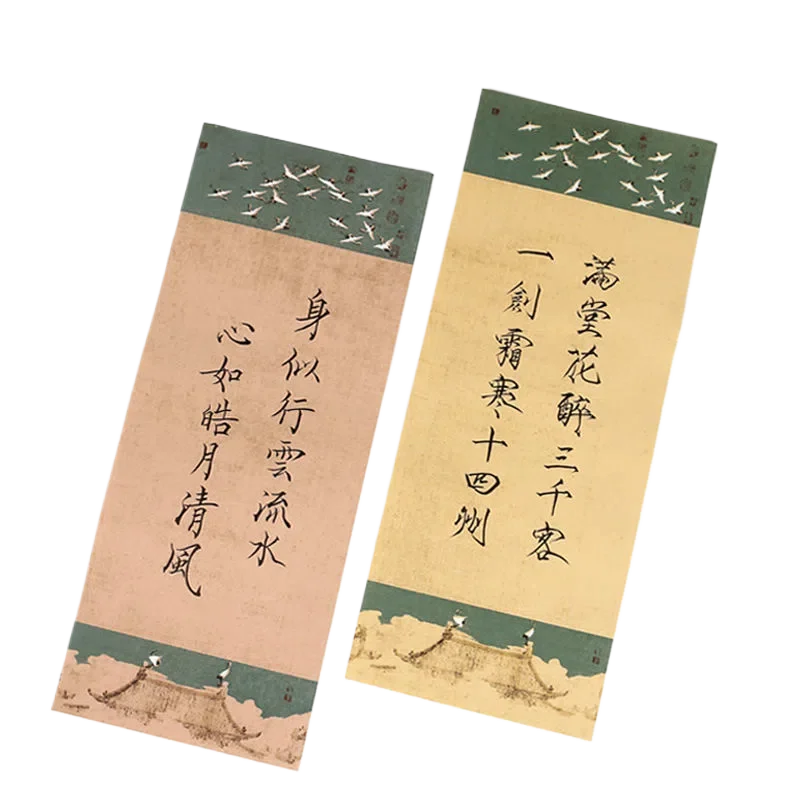 身似行雲流水
心如皓月清風
滿堂花醉三千客
一劍霜寒十四州